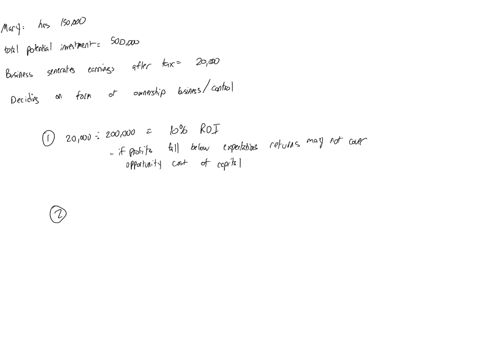 Mary: has 150,000
total potential investment = 500,000
Business generates earnings after tax = 20,000
Deciding on form of ownership business/control
① 20,000 ÷ 200,000 = 10% ROI
- if profits fall below expectations returns may not cover
opportunity cost of capital
②